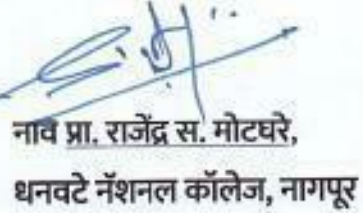 नाव प्रा. राजेंद्र स. मोटघरे,
धनवटे नॅशनल कॉलेज, नागपूर